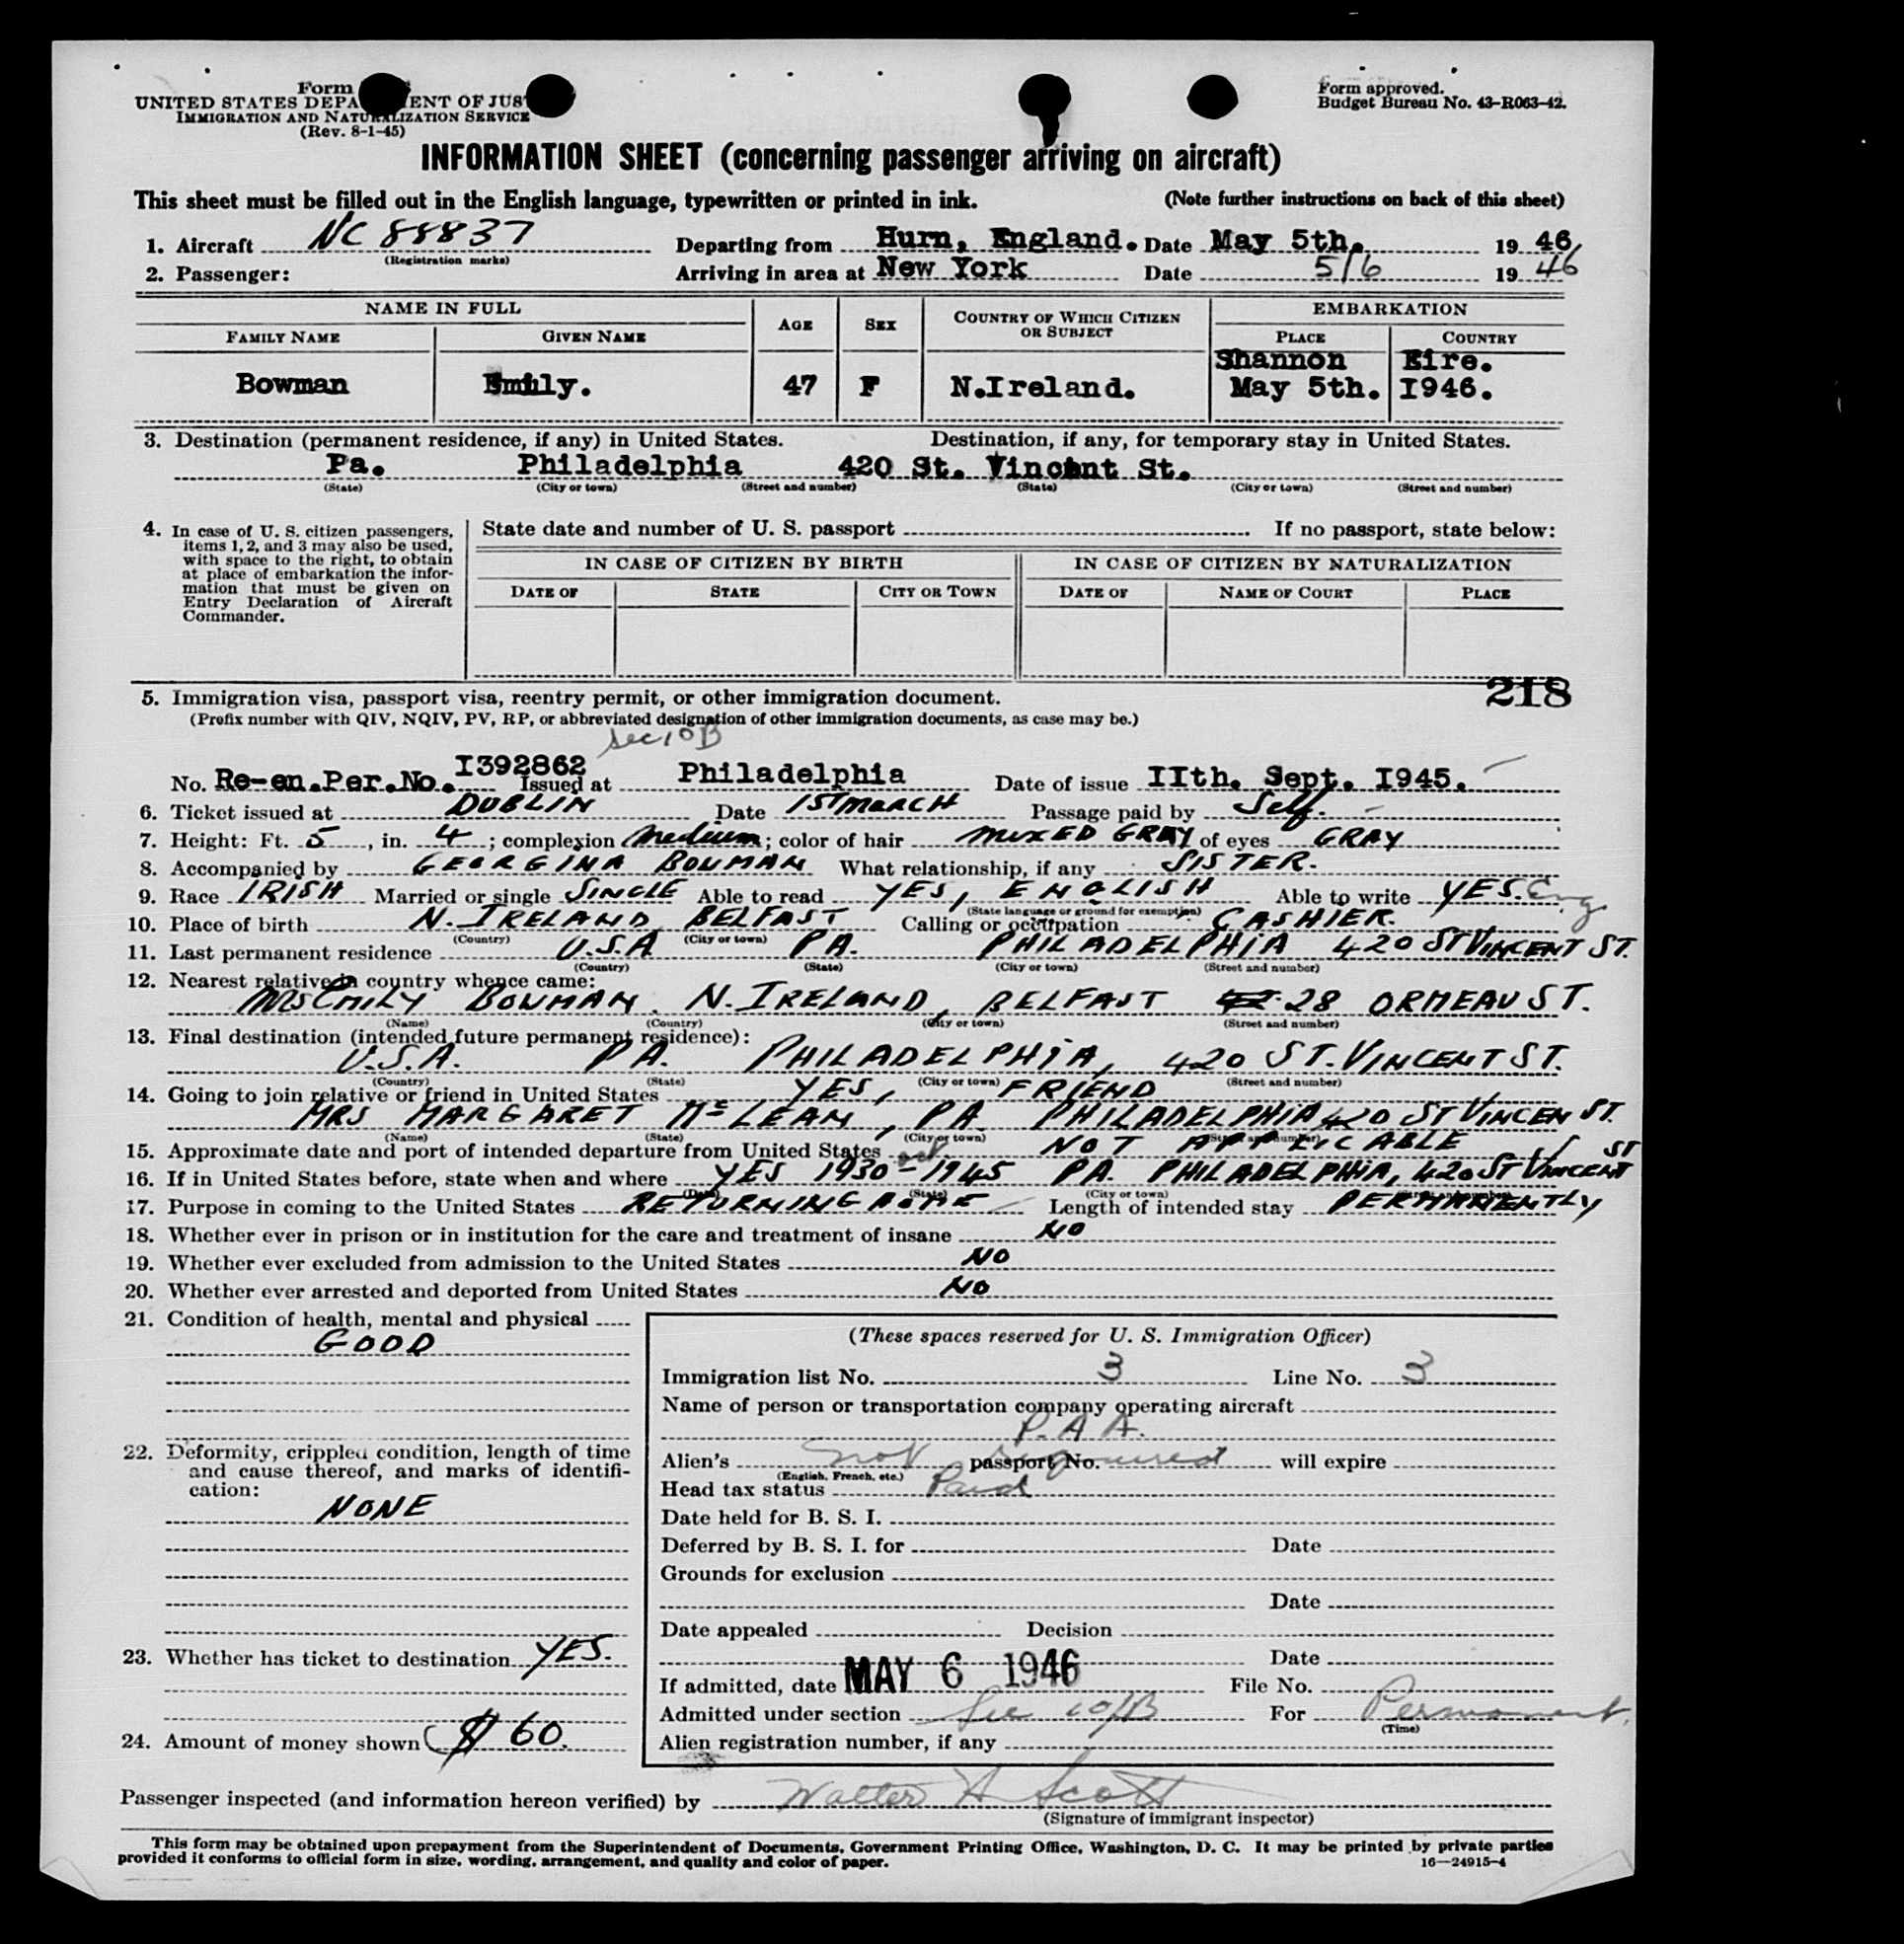 Form
UNITED STATES DEPA ENT OF JUS
IMMIGRATION AND NATURALIZATION SERVICE
(Rev. 8-1-45)
Form approved.
Budget Bureau No. 43-R063-42.
INFORMATION SHEET (concerning passenger arriving on aircraft)
This sheet must be filled out in the English language, typewritten or printed in ink. (Note further instructions on back of this sheet)
1. Aircraft NC 88837 Departing from Hurn, England. Date May 5th, 1946
(Registration marks)
2. Passenger: Arriving in area at New York Date 5/6 1946
NAME IN FULL
FAMILY NAME GIVEN NAME
AGE SEX COUNTRY OF WHICH CITIZEN OR SUBJECT
EMBARKATION
PLACE COUNTRY
Shannon Eire.
Bowman Emily. 47 F N.Ireland. May 5th. I946.
3. Destination (permanent residence, if any) in United States. Destination, if any, for temporary stay in United States.
Pa. Philadelphia 420 St. Vincent St.
(State) (City or town) (Street and number) (State) (City or town) (Street and number)
4. In case of U. S. citizen passengers,
items 1, 2, and 3 may also be used,
with space to the right, to obtain
at place of embarkation the infor-
mation that must be given on
Entry Declaration of Aircraft
Commander.
State date and number of U. S. passport . If no passport, state below:
IN CASE OF CITIZEN BY BIRTH IN CASE OF CITIZEN BY NATURALIZATION
DATE OF STATE CITY OR TOWN DATE OF NAME OF COURT PLACE
218
5. Immigration visa, passport visa, reentry permit, or other immigration document.
(Prefix number with QIV, NQIV, PV, RP, or abbreviated designation of other immigration documents, as case may be.)
Sec 10 B
No. Re-en.Per.No. I392862 Issued at Philadelphia Date of issue IIth. Sept. I945.
6. Ticket issued at DUBLIN Date 1ST MARCH Passage paid by Self.
7. Height: Ft. 5, in. 4; complexion Medium; color of hair MIXED GRAY of eyes GRAY
8. Accompanied by GEORGINA BOWMAN What relationship, if any SISTER.
9. Race IRISH Married or single SINGLE Able to read YES, ENGLISH Able to write YES. Eng
(State language or ground for exemption)
10. Place of birth N. IRELAND, BELFAST Calling or occupation CASHIER.
(Country) (City or town)
11. Last permanent residence U.S.A PA. PHILADELPHIA 420 ST VINCENT ST.
(Country) (State) (City or town) (Street and number)
12. Nearest relative in country whence came:
MRS EMILY BOWMAN. N. IRELAND, BELFAST 28 ORMEAU ST.
(Name) (Country) (City or town) (Street and number)
13. Final destination (intended future permanent residence):
U.S.A. PA. PHILADELPHIA, 420 ST. VINCENT ST.
(Country) (State) (City or town) (Street and number)
14. Going to join relative or friend in United States YES, FRIEND
MRS MARGARET McLEAN, PA PHILADELPHIA, 420 ST VINCEN ST.
(Name) (State) (City or town) (Street and number)
15. Approximate date and port of intended departure from United States NOT APPLICABLE
16. If in United States before, state when and where YES 1930-1945 PA. PHILADELPHIA, 420 ST VINCENT ST
(Date) (State) (City or town) (Street and number)
17. Purpose in coming to the United States RETURNING HOME Length of intended stay PERMANENTLY
18. Whether ever in prison or in institution for the care and treatment of insane NO
19. Whether ever excluded from admission to the United States NO
20. Whether ever arrested and deported from United States NO
21. Condition of health, mental and physical
GOOD
22. Deformity, crippled condition, length of time
and cause thereof, and marks of identifi-
cation:
NONE
23. Whether has ticket to destination YES.
24. Amount of money shown ($ 60.
(These spaces reserved for U. S. Immigration Officer)
Immigration list No. 3 Line No. 3
Name of person or transportation company operating aircraft
P.A A.
Alien's not passport No. required will expire
(English, French, etc.)
Head tax status Paid
Date held for B. S. I.
Deferred by B. S. I. for Date
Grounds for exclusion
Date
Date appealed Decision
Date
If admitted, date MAY 6 1946 File No.
Admitted under section Sec 10/B For Permanent.
(Time)
Alien registration number, if any
Passenger inspected (and information hereon verified) by Walter A Scott
(Signature of immigrant inspector)
This form may be obtained upon prepayment from the Superintendent of Documents, Government Printing Office, Washington, D. C. It may be printed by private parties
provided it conforms to official form in size, wording, arrangement, and quality and color of paper. 16—24915-4